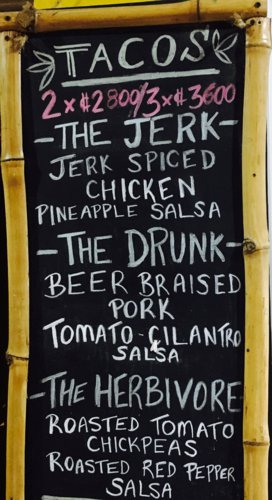 TACOS
2x₡2800/3x₡3600
-THE JERK-
JERK SPICED
CHICKEN
PINEAPPLE SALSA
-THE DRUNK-
BEER BRAISED
PORK
TOMATO-CILANTRO
SALSA
-THE HERBIVORE
ROASTED TOMATO
CHICKPEAS
ROASTED RED PEPPER
SALSA